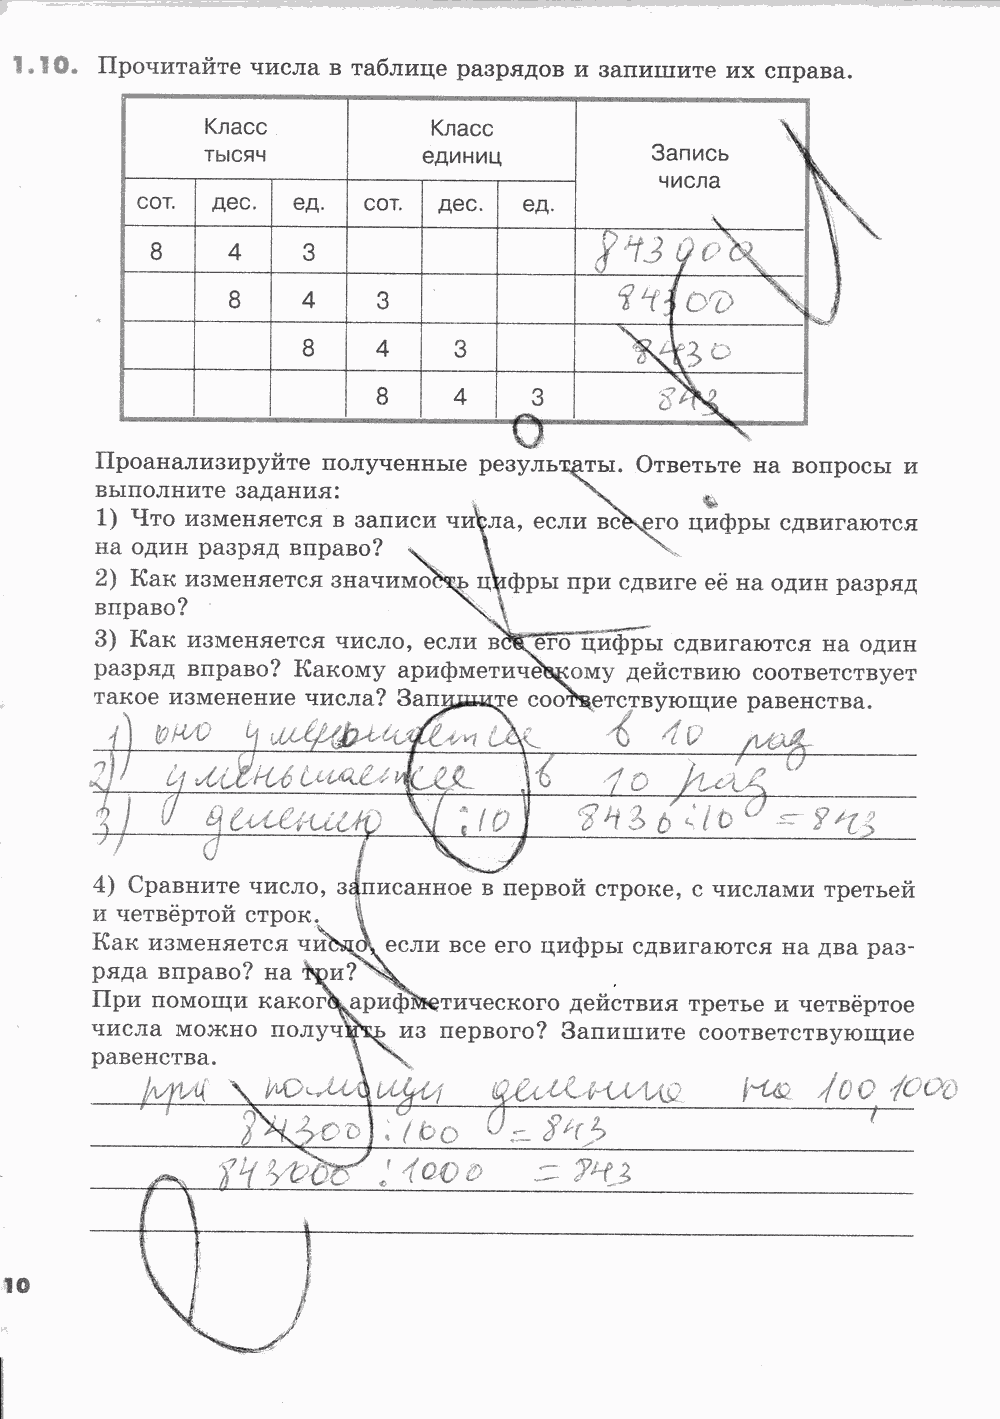 1.10. Прочитайте числа в таблице разрядов и запишите их справа.
Класс тысяч
Класс единиц
Запись числа
сот. дес. ед. сот. дес. ед.
8 4 3 843000
8 4 3 84300
8 4 3 8430
8 4 3 843
Проанализируйте полученные результаты. Ответьте на вопросы и
выполните задания:
1) Что изменяется в записи числа, если все его цифры сдвигаются
на один разряд вправо?
2) Как изменяется значимость цифры при сдвиге её на один разряд
вправо?
3) Как изменяется число, если все его цифры сдвигаются на один
разряд вправо? Какому арифметическому действию соответствует
такое изменение числа? Запишите соответствующие равенства.
1) оно уменьшается в 10 раз
2) уменьшается в 10 раз
3) делению (:10) 8430:10 = 843
4) Сравните число, записанное в первой строке, с числами третьей
и четвёртой строк.
Как изменяется число, если все его цифры сдвигаются на два раз-
ряда вправо? на три?
При помощи какого арифметического действия третье и четвёртое
числа можно получить из первого? Запишите соответствующие
равенства.
при помощи деления на 100, 1000
84300:100 = 843
843000:1000 = 843
10